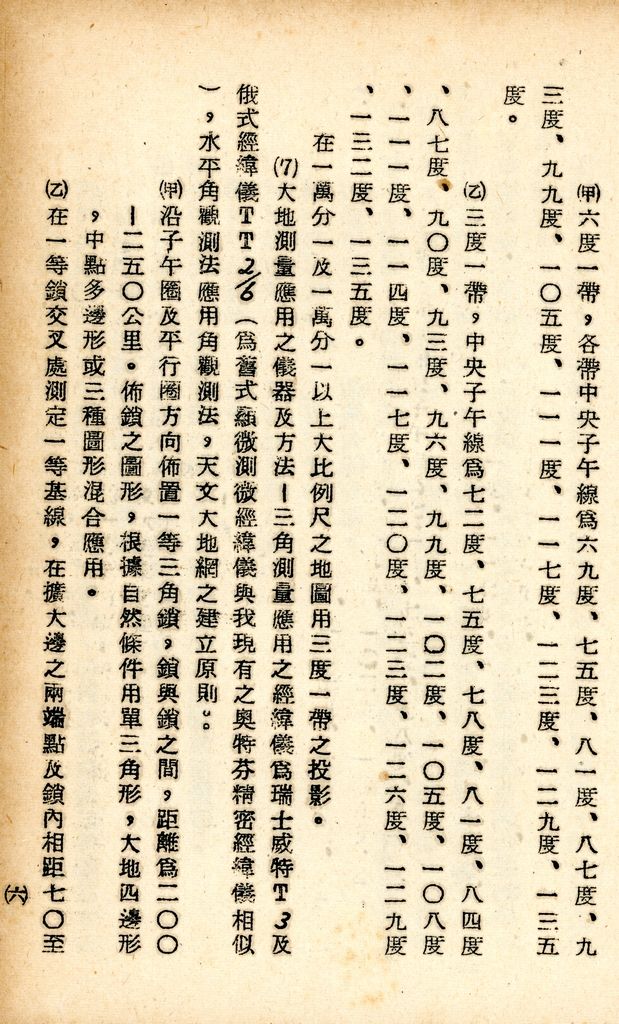 ㈙六度一帶，各帶中央子午線爲六九度、七五度、八一度、八七度、九
三度、九九度、一〇五度、一一一度、一一七度、一二三度、一二九度、一三五
度。
㈚三度一帶，中央子午線爲七二度、七五度、七八度、八一度、八四度
、八七度、九〇度、九三度、九六度、九九度、一〇二度、一〇五度、一〇八度
、一一一度、一一四度、一一七度、一二〇度、一二三度、一二六度、一二九度
、一三二度、一三五度。
在一萬分一及一萬分一以上大比例尺之地圖用三度一帶之投影。
(7)大地測量應用之儀器及方法—三角測量應用之經緯儀爲瑞士威特T3及
俄式經緯儀TT2/6（爲舊式顯微測微經緯儀與我現有之奥特芬精密經緯儀相似
），水平角觀測法應用角觀測法，天文大地網之建立原則：。
㈙沿子午圈及平行圈方向佈置一等三角鎖，鎖與鎖之間，距離爲二〇〇
—二五〇公里。佈鎖之圖形，根據自然條件用單三角形，大地四邊形
，中點多邊形或三種圖形混合應用。
㈚在一等鎖交叉處測定一等基線，在擴大邊之兩端點及鎖內相距七〇至
㈥